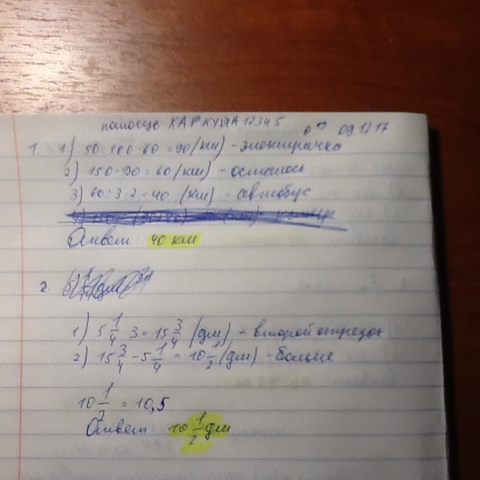 помощь КАРКУША12345 от 09.12.17
1. 1) 50:100·60=90(км) - электричка
2) 150-90=60(км) - осталось
3) 60:3·2=40 (км) - автобус
Ответ: 40 км
2.
1) 5 1/4 · 3 = 15 3/4 (дм) - второй отрезок
2) 15 3/4 - 5 1/4 = 10 1/2 (дм) - больше
10 1/2 = 10,5
Ответ: 10 1/2 дм